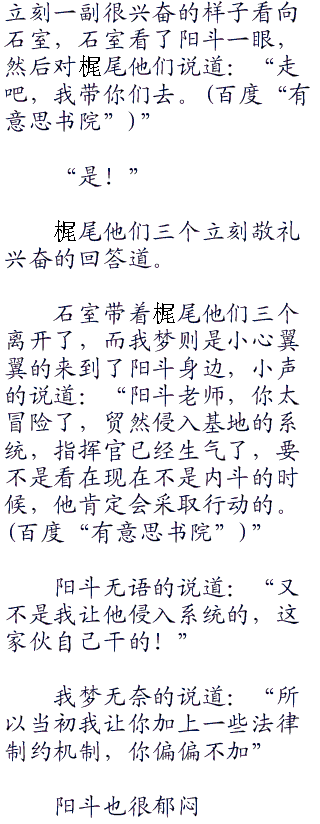 立刻一副很兴奋的样子看向
石室，石室看了阳斗一眼，
然后对梶尾他们说道：“走
吧，我带你们去。(百度“有
意思书院”)”
“是！”
梶尾他们三个立刻敬礼
兴奋的回答道。
石室带着梶尾他们三个
离开了，而我梦则是小心翼
翼的来到了阳斗身边，小声
的说道：“阳斗老师，你太
冒险了，贸然侵入基地的系
统，指挥官已经生气了，要
不是看在现在不是内斗的时
候，他肯定会采取行动的。
(百度“有意思书院”)”
阳斗无语的说道：“又
不是我让他侵入系统的，这
家伙自己干的！”
我梦无奈的说道：“所
以当初我让你加上一些法律
制约机制，你偏偏不加”
阳斗也很郁闷